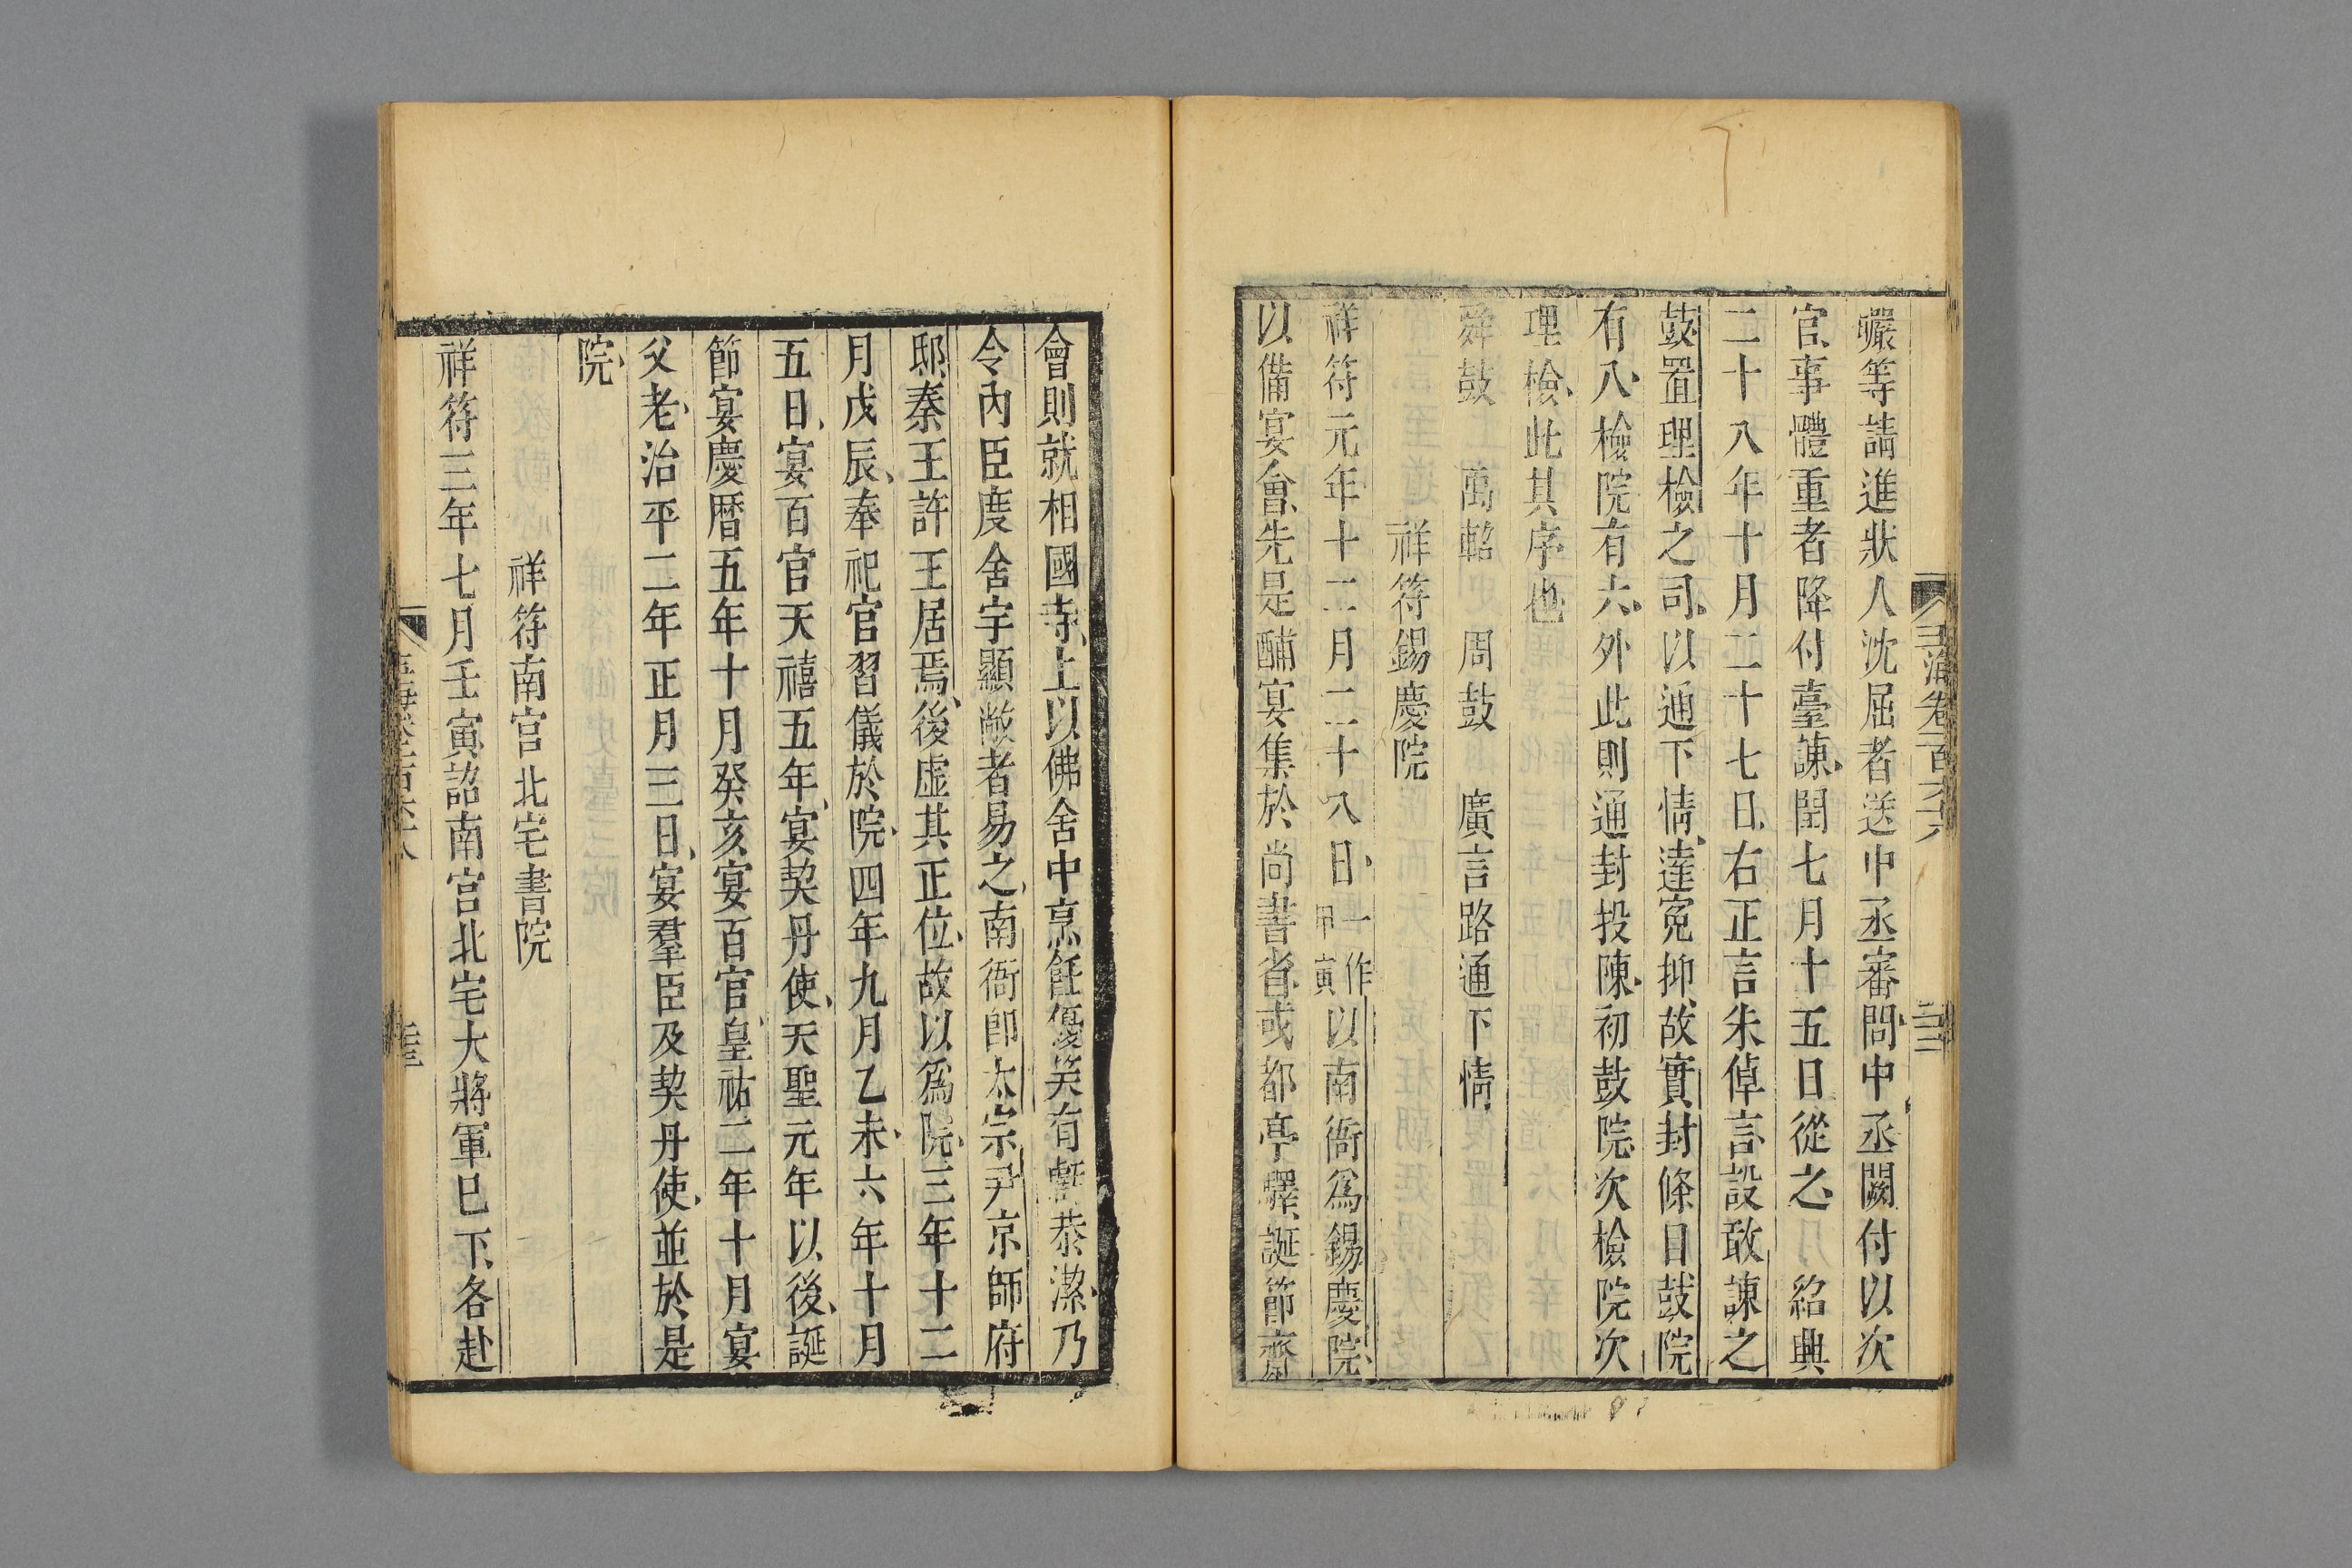 玉海卷一百六十八
巖等請進狀人沈屈者送中丞審問中丞闕付以次
官事體重者降付臺諫閏七月十五日從之　紹興
二十八年十月二十七日右正言朱倬言設敢諫之
鼓置理檢之司以通下情達冤抑故實封條目鼓院
有八檢院有六外此則通封投陳初鼓院次檢院次
理檢此其序也
舜鼓　禹鞀　周鼓　廣言路通下情
祥符錫慶院
祥符元年十二月二十八日一作甲寅以南衙爲錫慶院
以備宴會先是酺宴集於尚書省或都亭驛誕節齋
會則就相國寺上以佛舍中烹飪優笑有虧恭潔乃
令內臣度舍宇顯敞者易之南衙卽太宗尹京師府
邸秦王許王居焉後虛其正位故以爲院三年十二
月戊辰奉祀官習儀於院四年九月乙未六年十月
五日宴百官天禧五年宴契丹使天聖元年以後誕
節宴慶暦五年十月癸亥宴百官皇祐二年十月宴
父老治平二年正月三日宴羣臣及契丹使並於是
院
祥符南宫北宅書院
祥符三年七月壬寅詔南宫北宅大將軍已下各赴